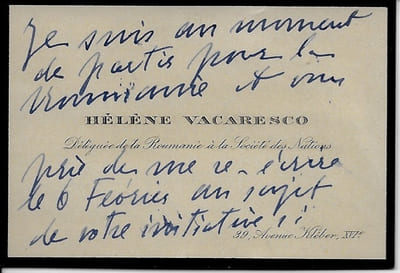 Je suis au moment
de partir pour la
Roumanie et vous
HÉLÈNE VACARESCO
Déléguée de la Roumanie à la Société des Nations
prie de me re-écrire
le 6 Février au sujet
de votre initiative si
39, Avenue Kléber, XVIe